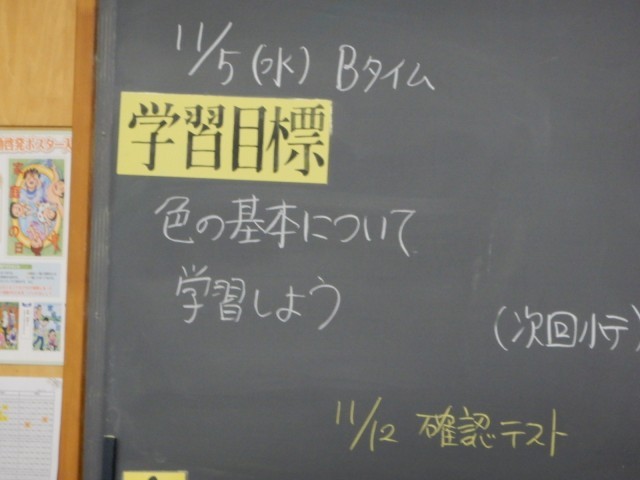 11/5(水) Bタイム
学習目標
色の基本について
学習しよう
(次回小テ)
11/12 確認テスト
家庭の日